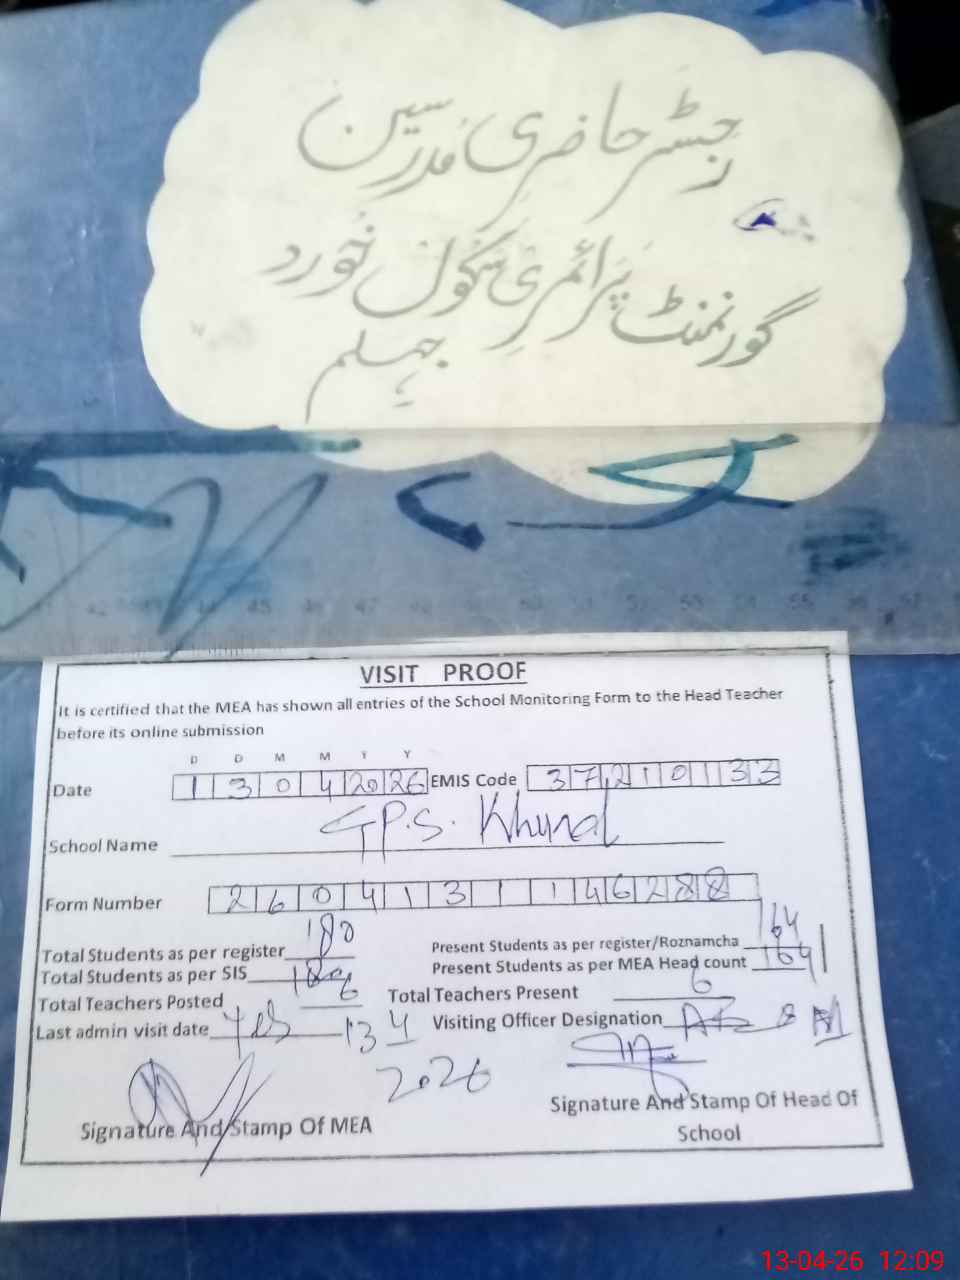 رجسٹر حاضری مدرسین
گورنمنٹ پرائمری سکول خورد
جہلم
42 43 44 45 46 47 48 49 50 51 52 53 54 55 56 57
VISIT PROOF
It is certified that the MEA has shown all entries of the School Monitoring Form to the Head Teacher
before its online submission
D D M M Y Y
Date 1 3 0 4 20 26 EMIS Code 3 7 2 1 0 1 3 3
School Name G.P.S. Khurd
Form Number 2 6 0 4 1 3 1 1 4 6 2 8 8
Total Students as per register 180
Present Students as per register/Roznamcha 164
Total Students as per SIS 180
Present Students as per MEA Head count 164
Total Teachers Posted 6
Total Teachers Present 6
Last admin visit date Yes 13 4
2026
Visiting Officer Designation
Signature And Stamp Of MEA
Signature And Stamp Of Head Of
School
13-04-26 12:09